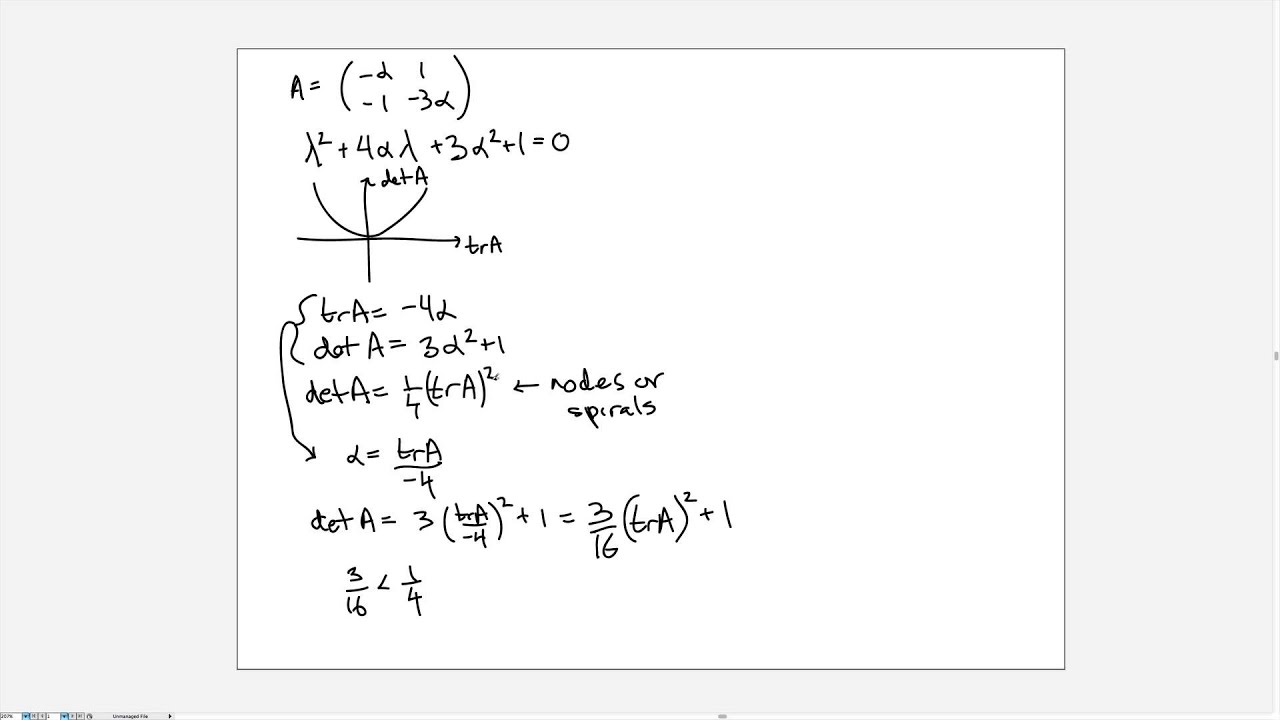 A = ( -α 1
-1 -3α )
λ² + 4αλ + 3α² + 1 = 0
det A
tr A
tr A = -4α
det A = 3α² + 1
det A = 1/4 (tr A)² ← nodes or
spirals
α = tr A / -4
det A = 3 (tr A / -4)² + 1 = 3/16 (tr A)² + 1
3/16 < 1/4
207% 1 Unmanaged File